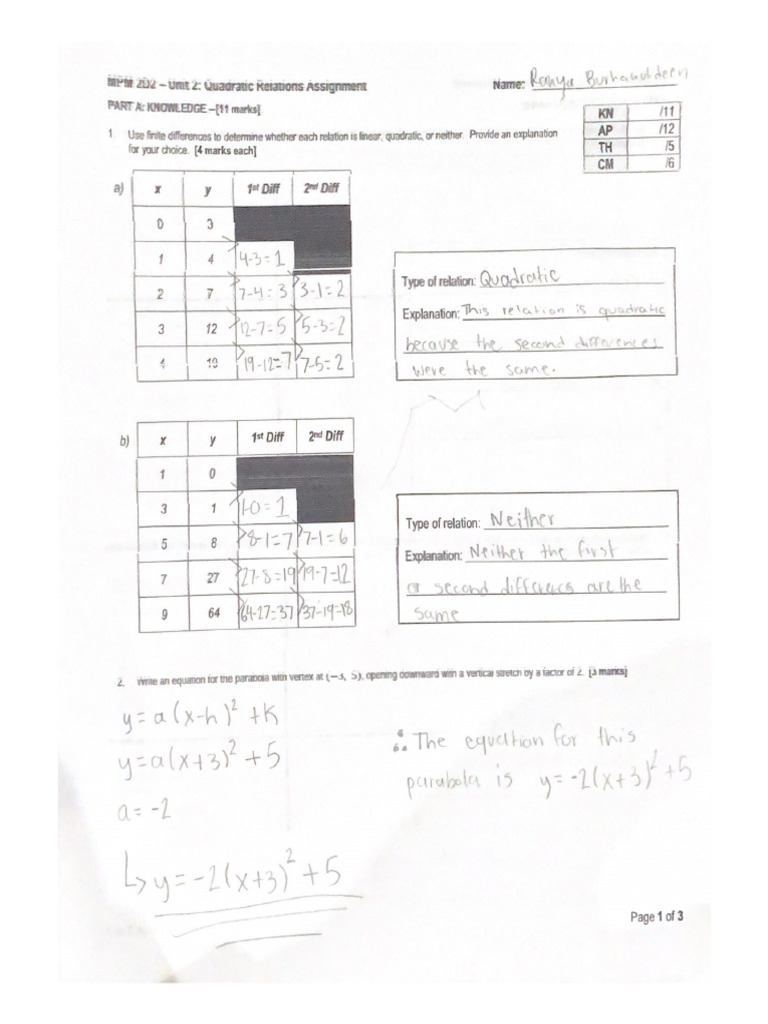 MPM 2D2 – Unit 2: Quadratic Relations Assignment
Name: Ranya Burhanuddeen
PART A: KNOWLEDGE –[11 marks]
KN /11
AP /12
TH /5
CM /6
1. Use finite differences to determine whether each relation is linear, quadratic, or neither. Provide an explanation
for your choice. [4 marks each]
a) x y 1st Diff 2nd Diff
0 3
1 4 4-3=1
2 7 7-4=3 3-1=2
3 12 12-7=5 5-3=2
4 19 19-12=7 7-5=2
Type of relation: Quadratic
Explanation: This relation is quadratic
because the second differences
were the same.
b) x y 1st Diff 2nd Diff
1 0
3 1 1-0=1
5 8 8-1=7 7-1=6
7 27 27-8=19 19-7=12
9 64 64-27=37 37-19=18
Type of relation: Neither
Explanation: Neither the first
or second differences are the
same
2. Write an equation for the parabola with vertex at (−3, 5), opening downward with a vertical stretch by a factor of 2. [3 marks]
y=a(x-h)² +k
y=a(x+3)² +5
a=-2
↳y=-2(x+3)² +5
∴ The equation for this
parabola is y=-2(x+3)² +5
Page 1 of 3